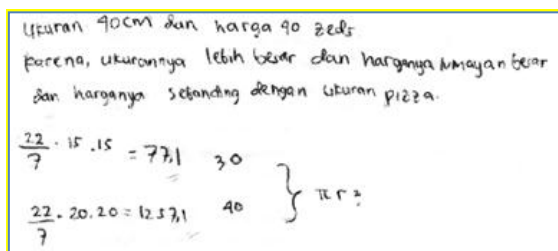 Ukuran 40cm dan harga 40 zeds
karena, ukurannya lebih besar dan harganya lumayan besar
dan harganya sebanding dengan ukuran pizza.
22/7 · 15 . 15 = 77,1 30
22/7 . 20 . 20 = 1257,1 40
πr²